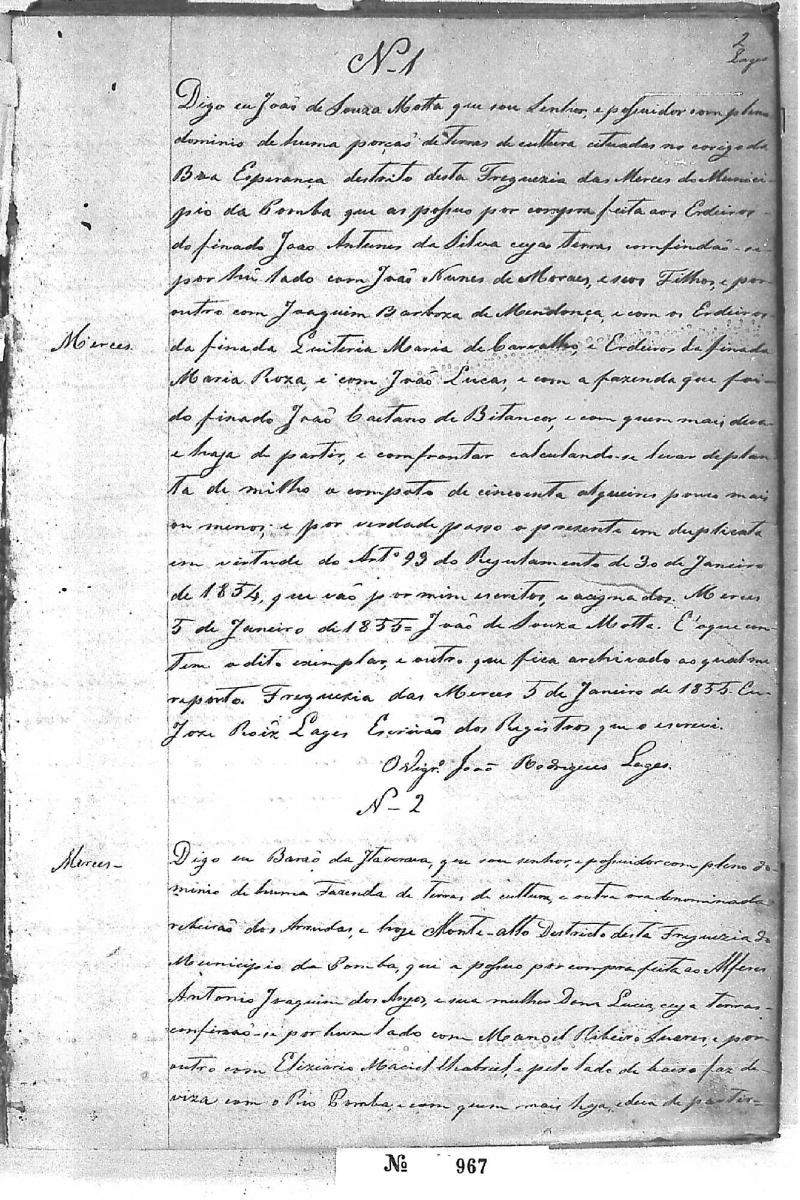 2
Lages
N-1
Digo eu João de Souza Motta que sou Senhor, e possuidor com pleno
dominio de huma porçaõ de terras de cultura cituadas no corigo da
Boa Esperança destrito desta Freguezia das Merces do Munici-
pio da Pomba que as possuo por compra feita aos Erdeiros
do finado Joao Antunes da Silva cujas terras comfindaõ-se
por hũ lado com João Nunes de Moraes, e seos Filhos, e por
outro com Joaquim Barboza de Mendonça, e com os Erdeiros
da finada Quiteria Maria de Carvalho, e Erdeiros da finada
Merces
Maria Roza, e com João Lucas, e com a fazenda que foi
do finado João Caetano de Bitancor, e com quem mais deva
e haja de partir, e comfrontar calculando-se levar de plan-
ta de milho o computo de cincoenta alqueires pouco mais
ou menos; e por verdade passo o presente em duplicata
em virtude do Artº 93 do Regulamento de 30 de Janeiro
de 1854, que vão por mim escritos, e acignados. Merces
5 de Janeiro de 1855= João de Souza Motta. E' o que con-
tem o dito exemplar, e outro que fica archivado ao qual me
reporto. Freguezia das Merces 5 de Janeiro de 1855. Eu
Joze Roiz Lages Escrivão dos Registros que o escrevi.
O Vigrº João Rodrigues Lages.
N-2
Merces-
Digo eu Barão da Itaverava, que sou senhor, e possuidor com pleno do-
minio de huma Fazenda de terras de cultura, e outra ora denominada
ribeirão dos Arrudas, e hoje Monte-alto Destricto desta Freguezia do
Municipio da Pomba, que a possuo por compra feita ao Alferes
Antonio Joaquim dos Anjos, e sua mulher Dona Lucia, cuja terras
confinaõ-se por hum lado com Manoel Ribeiro Soares, e por
outro com Eliziario Maciel, e pelo lado de baixo faz de-
viza com o Rio Pomba, e com quem mais haja, e deva de partir-
Nº 967